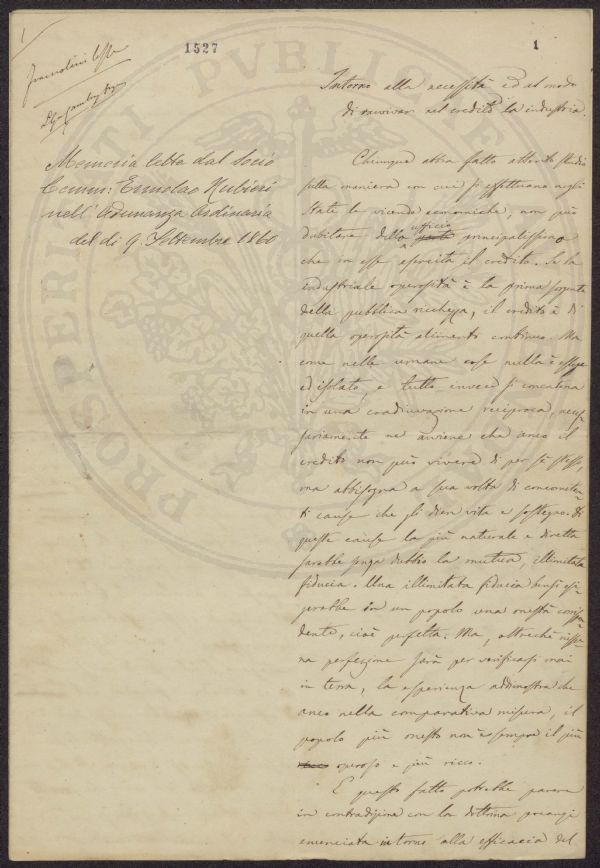 1527
1
Intorno alla necessità ed al modo
di ravvivar nel credito la industria.
Memoria letta dal Socio
Comm: Ermolao Rubieri
nell'Adunanza Ordinaria
del dì 9. Settembre 1860
Chiunque abbia fatto attento studio
sulla maniera con cui si effettuano negli
Stati le vicende economiche, non può
dubitare dell' ufficio principalissimo
che in esse esercita il credito. Se la
industriale operosità è la prima sorgente
della pubblica ricchezza, il credito è di
quella operosità alimento continuo. Ma
come nelle umane cose nulla è
ed isolato, e tutto invece si concatena
in una coadiuvazione reciproca, neces-
sariamente ne avviene che anco il
credito non può vivere di per sè stesso,
ma abbisogna a sua volta di concomitan-
ti cause che gli dien vita e sostegno. Di
queste cause la più naturale e diretta
sarebbe senza dubbio la mutua, illimitata
fiducia. Una illimitata fiducia bensì esi-
gerebbe in un popolo una onestà corrispon-
dente, cioè perfetta. Ma, oltrechè nissu-
na perfezione sarà per verificarsi mai
in terra, la esperienza addimostra che
anco nella comparativa misura, il
popolo più onesto non è sempre il più
operoso e più ricco.
E questo fatto potrebbe parere
in contradizione con la dottrina poc'anzi
enunciata intorno alla efficacia del
PROSPERITATI PUBLICAE